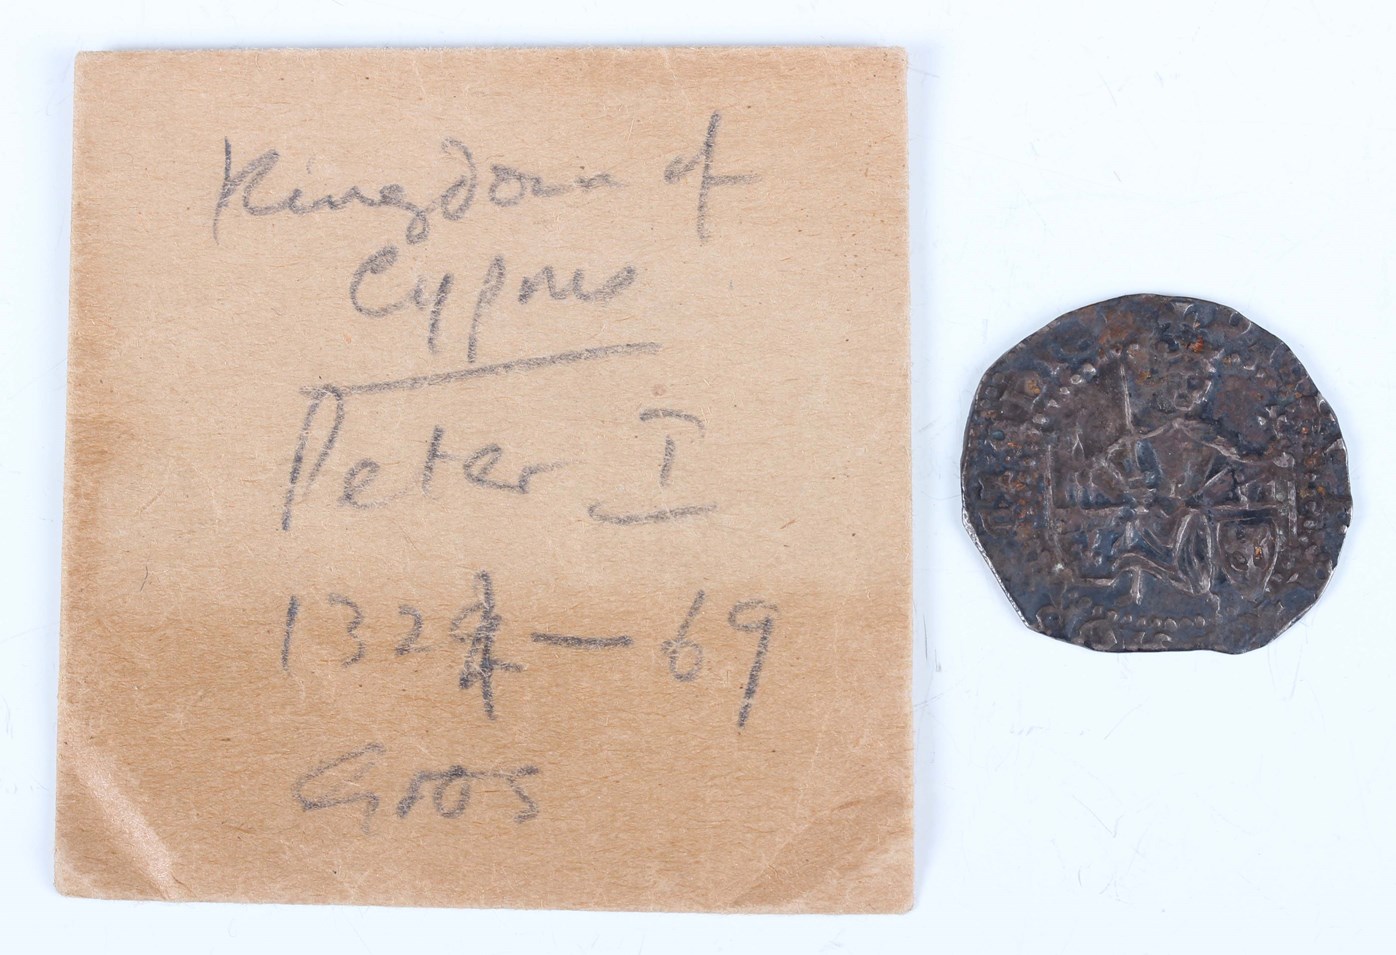 Kingdom of
Cyprus
Peter I
1324 — 69
Gros